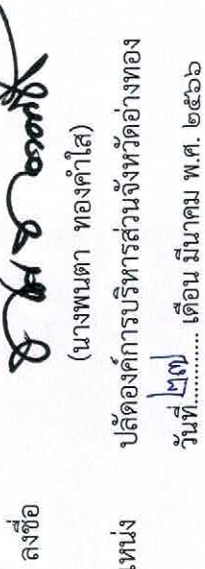 ลงชื่อ
(นางพนตา ทองคำใส)
แหน่ง ปลัดองค์การบริหารส่วนจังหวัดอ่างทอง
วันที่ ๒๗ เดือน มีนาคม พ.ศ. ๒๕๖๖